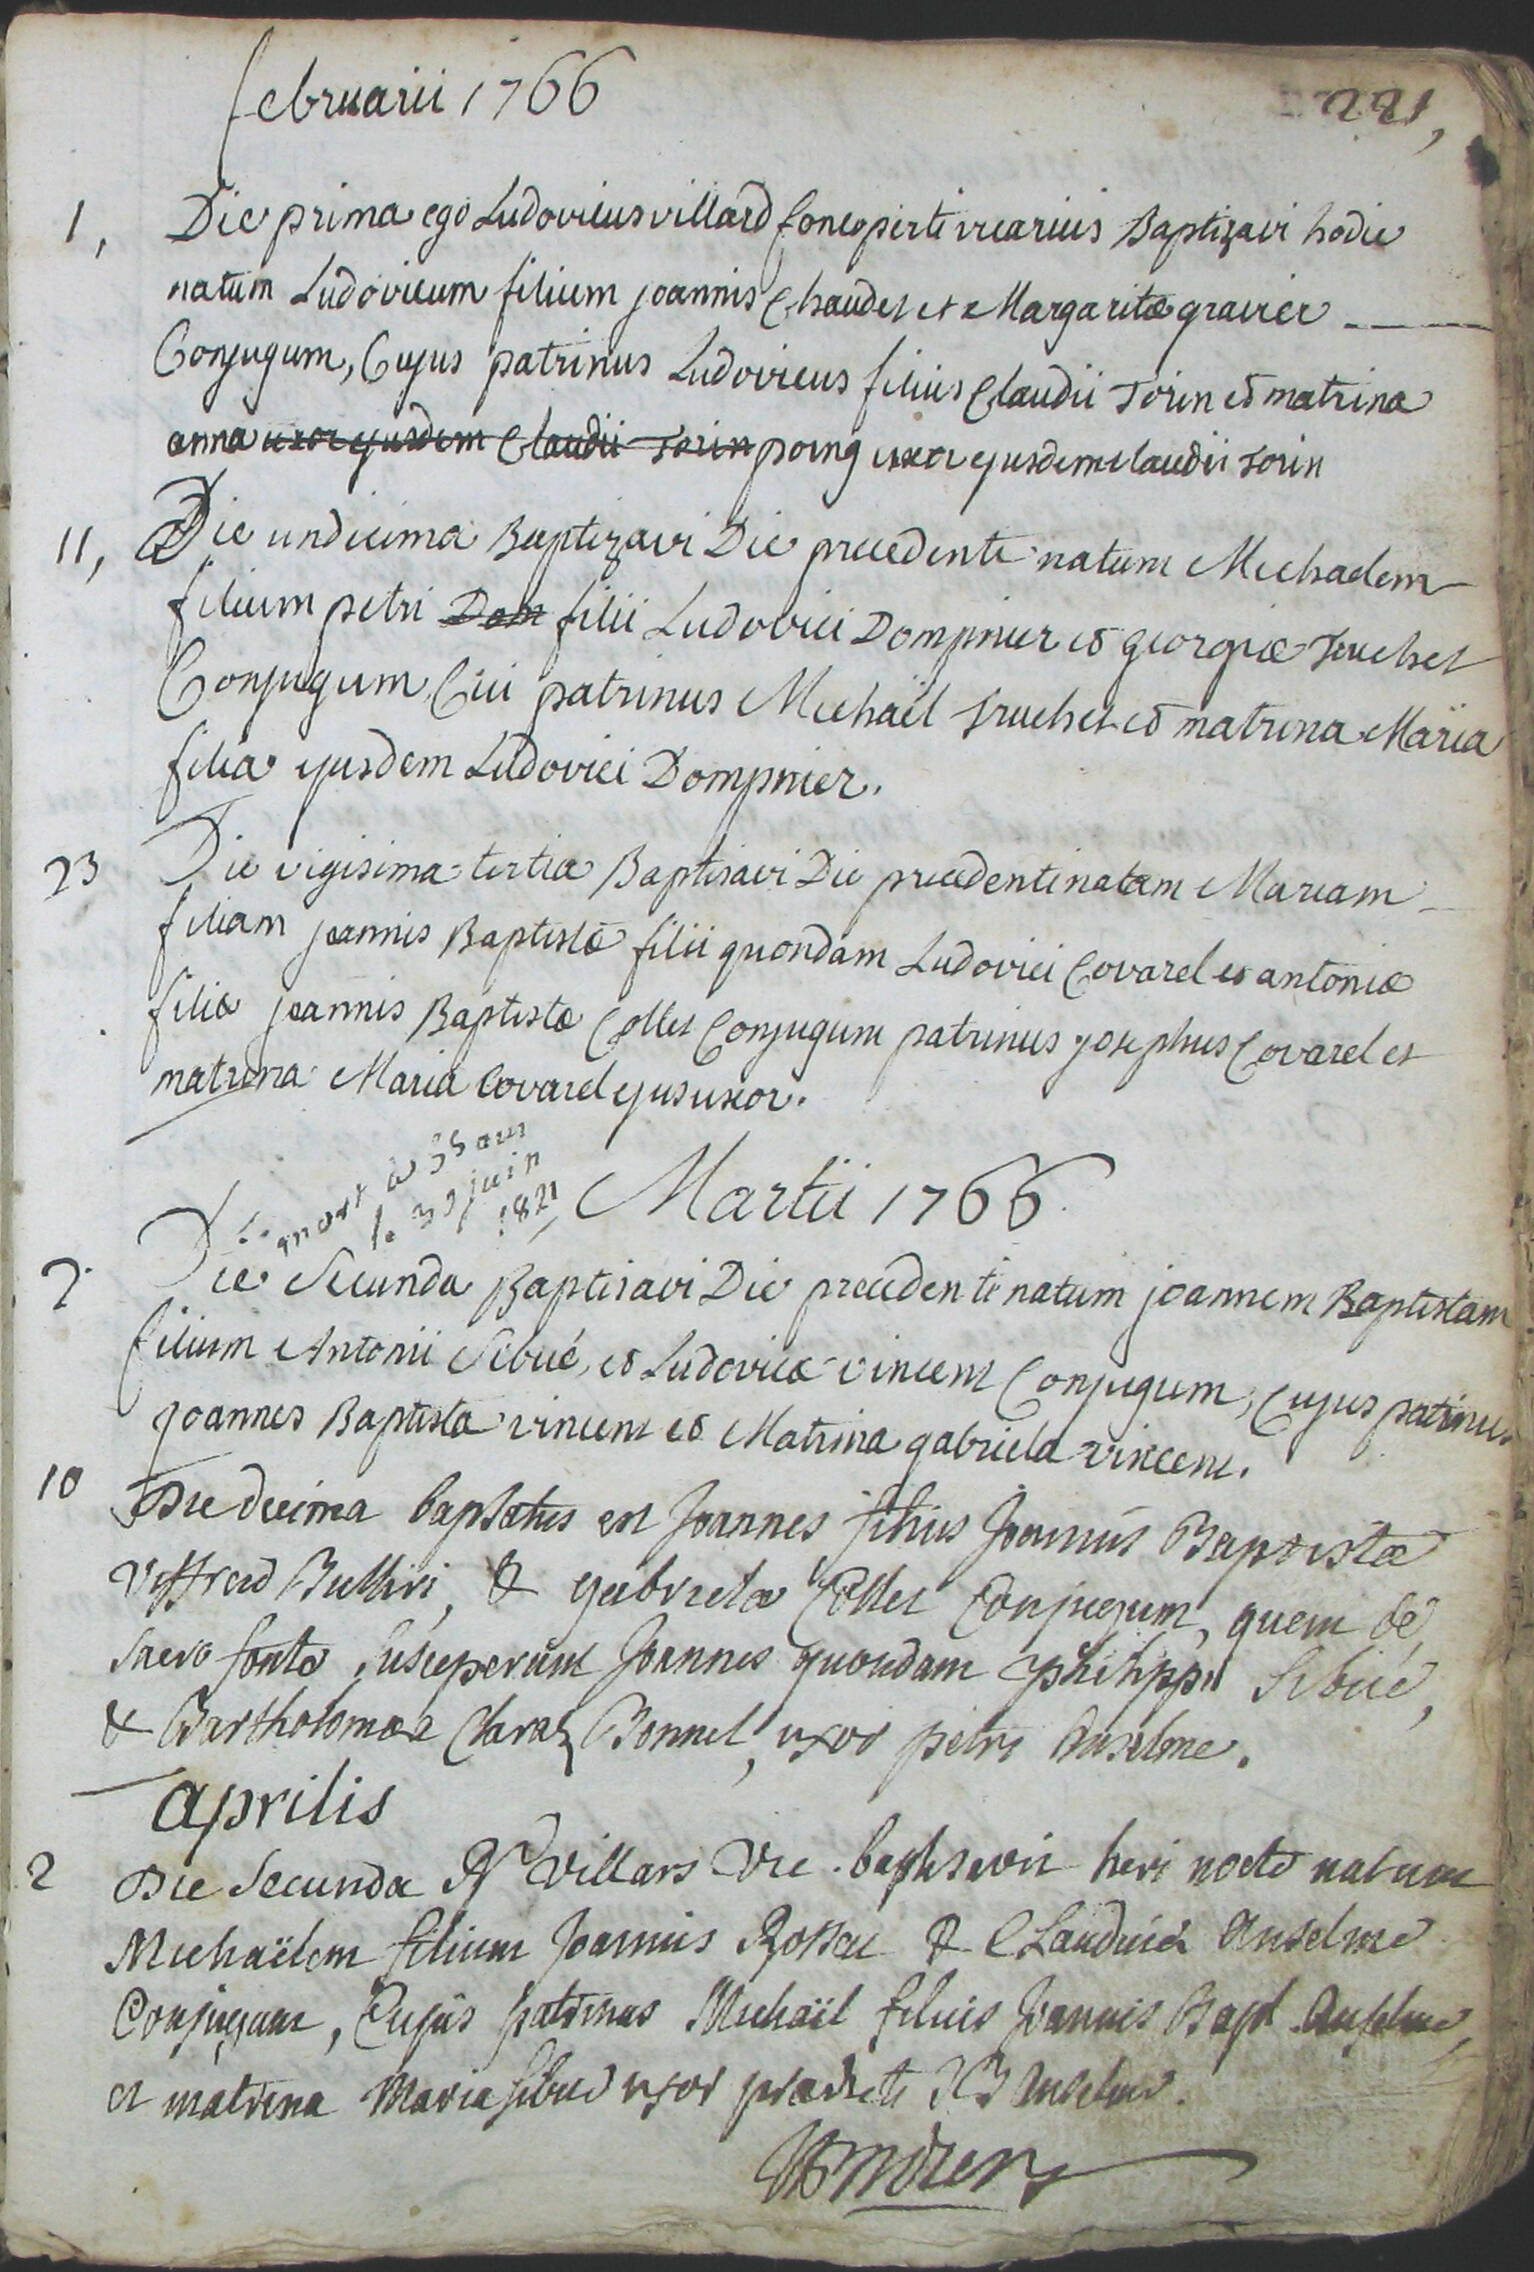 februarii 1766
221,
1, Die prima ego Ludovicus villard vicarius Baptizavi hodie
natum Ludovicum filium joannis Chaudet et Margaritæ gravier
Conjugum, Cujus patrinus Ludovicus filius Claudii Torin et matrina
anna uxor ejusdem Claudii Torin poing uxor ejusdem claudii Torin
11, Die undicima Baptizavi Die precedente natum Michaelem
filium petri Dom filii Ludovici Dompnier et georgiæ truchet
Conjugum Cui patrinus Michaël truchet et matrina Maria
filia ejusdem Ludovici Dompnier.
23 Die vigisima tertia Baptisavi Die precedenti natam Mariam
filiam joannis Baptistæ filii quondam Ludovici Covarel et antoniæ
filiæ joannis Baptistæ Collet Conjugum patrinus josephus Covarel et
matrina Maria Covarel ejus uxor.
mort à 55 ans
le 30 juin
1821
Martii 1766
2. Die Secunda Baptisavi Die precedenti natum joannem Baptistam
filium Antonii Sibué, et Ludovicæ vincent Conjugum, Cujus patrinus
joannes Baptista vincent et Matrina gabriela vincent.
10 Die decima baptisatus est Joannes filius Joannis Baptistæ
Viffred Bulliri, & gabrielæ Collet Conjugum, quem de
sacro fonte susceperunt Joannes quondam philippi Sibué,
& Bartholomæa Claraz Bonnel, uxor petri Anselme.
aprilis
2 Die Secunda Villars Vic. baptisavi heri nocte natum
Michaëlem filium Joannis Rossat & Claudiæ Anselme
Conjugum, Cujus patrinus Michaël filius Joannis Bapt. Anselme,
et matrina Maria sibué uxor prædicti JB Anselme.